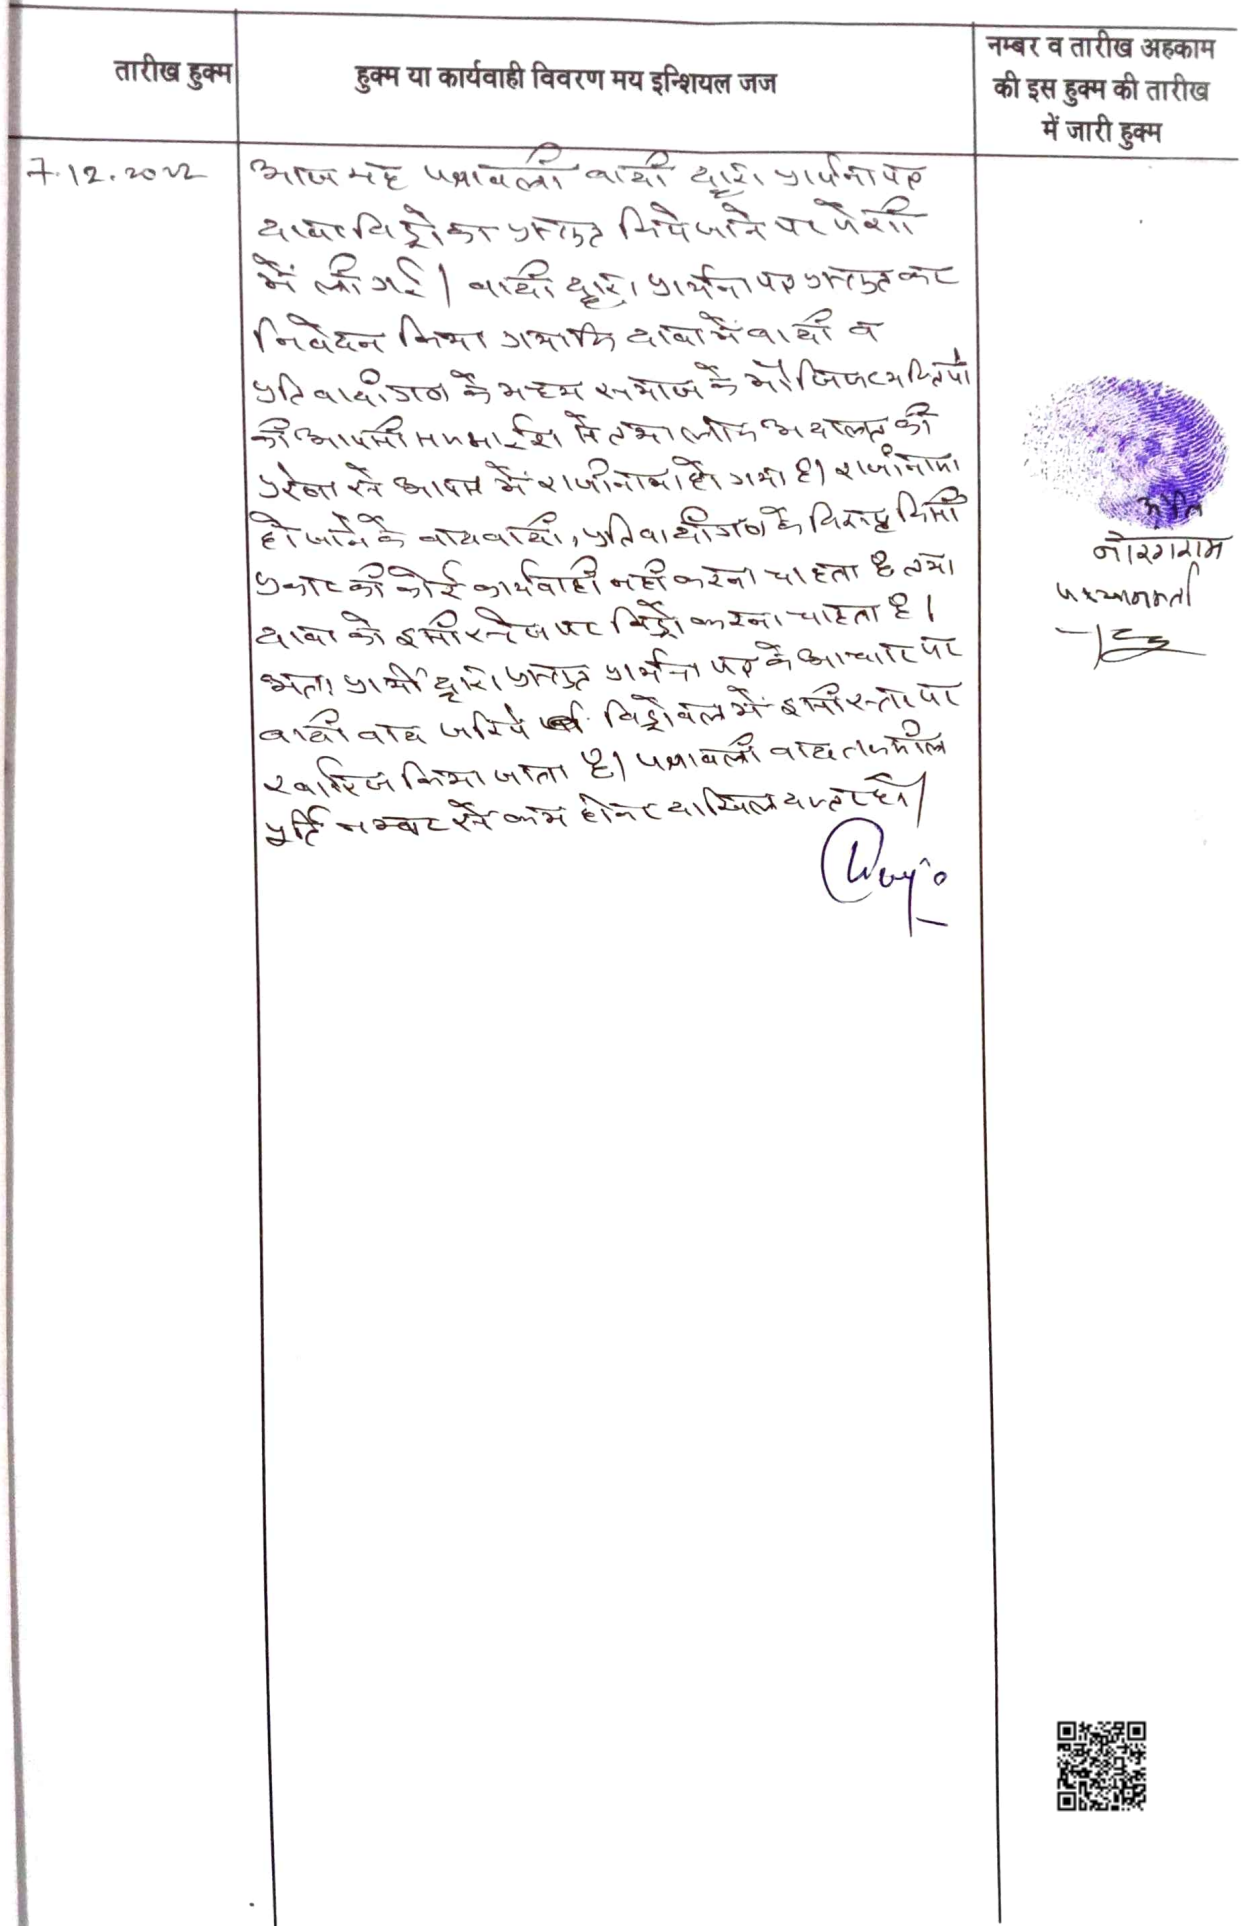 तारीख हुक्म
हुक्म या कार्यवाही विवरण मय इन्शियल जज
नम्बर व तारीख अहकाम
की इस हुक्म की तारीख
में जारी हुक्म
7.12.2022
आज यह पत्रावली वादी द्वारा प्रार्थना पत्र
दावा विड्रो का प्रस्तुत किये जाने पर पेशी
में ली गई। वादी द्वारा प्रार्थना पत्र प्रस्तुत कर
निवेदन किया गया कि दावा में वादी व
प्रतिवादीगण के मध्य समाज के मौजिज व्यक्तियों
की आपसी समझाईश से तथा लोक अदालत की
प्रेरणा से आपस में राजीनामा हो गया है। राजीनामा
हो जाने के बाद वादी, प्रतिवादीगण के विरुद्ध किसी
प्रकार की कोई कार्यवाही नहीं करना चाहता है तथा
दावा को इसी स्टेज पर विड्रो करना चाहता है।
अतः प्रार्थी द्वारा प्रस्तुत प्रार्थना पत्र के आधार पर
वादी वाद जरिये विड्रोवल में इसी स्तर पर
खारिज किया जाता है। पत्रावली बाद तकमील
पूर्ति नम्बर से कम होकर दाखिल दफ्तर हो।
नोरंगराम